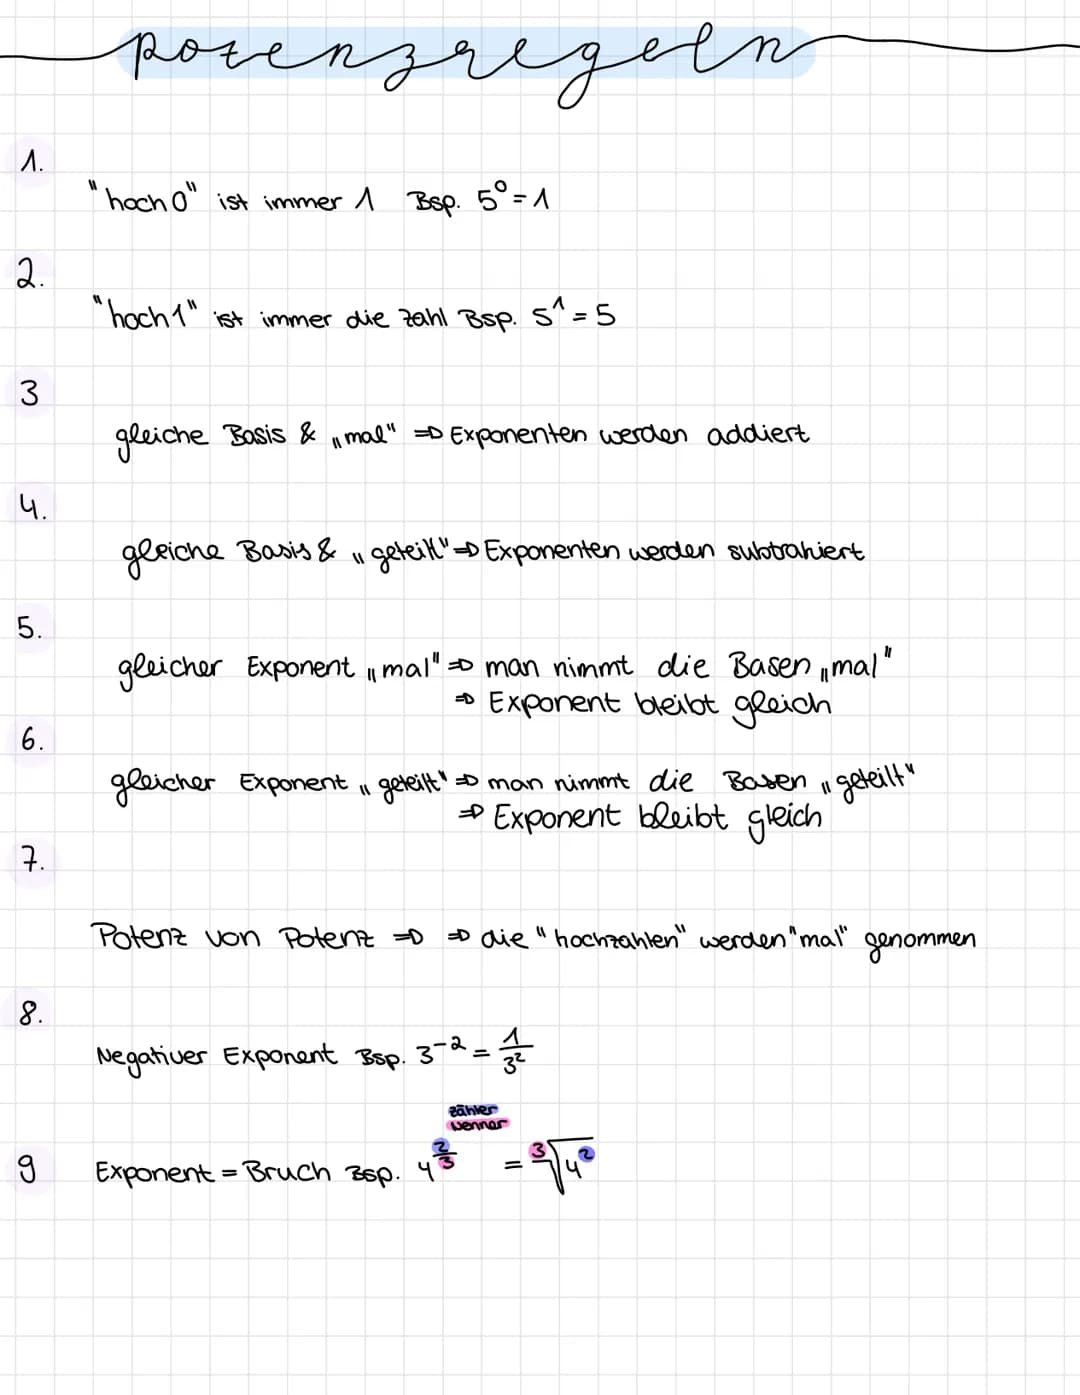 potenzregeln
1.
"hoch 0" ist immer 1 Bsp. 5⁰ = 1
2.
"hoch 1" ist immer die zahl Bsp. 5¹ = 5
3
gleiche Basis & „mal" => Exponenten werden addiert
4.
gleiche Basis & „geteilt" => Exponenten werden subtrahiert
5.
gleicher Exponent „mal" => man nimmt die Basen „mal"
=> Exponent bleibt gleich
6.
gleicher Exponent „geteilt" => man nimmt die Basen „geteilt"
=> Exponent bleibt gleich
7.
Potenz von Potenz => => die "hochzahlen" werden "mal" genommen
8.
Negativer Exponent Bsp. 3⁻² = 1/3²
zähler
Nenner
9 Exponent = Bruch Bsp. 4^(2/3) = ³√4²